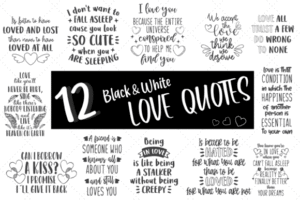 It is better to have
LOVED AND LOST
than never to have
LOVED AT ALL
I don't want to
FALL ASLEEP
cause you look
SO CUTE
when you
ARE SLEEPING
I love you
BECAUSE THE ENTIRE
UNIVERSE
conspired
TO HELP ME
find you
We accept
the love
we think
we
deserve
LOVE ALL
TRUST A FEW
DO WRONG
TO NONE
12
Black & White
LOVE QUOTES
Love
like there's
HEAVEN ON EARTH
Love is that
CONDITION
in which the
HAPPINESS
of another
person is
ESSENTIAL
to your own
CAN I BORROW
A KISS?
I PROMISE
I'LL GIVE IT BACK
A friend is
SOMEONE WHO
knows all
ABOUT YOU
and still
LOVES YOU
Being
IN LOVE
is like being
A STALKER
without being
CREEPY
Is better to be
HATED
for what you are
than to be
LOVED
for what you are not
You know you're
IN LOVE
when you
Can't Fall Asleep
because
REALITY is
FINALLY better
than your
DREAMS